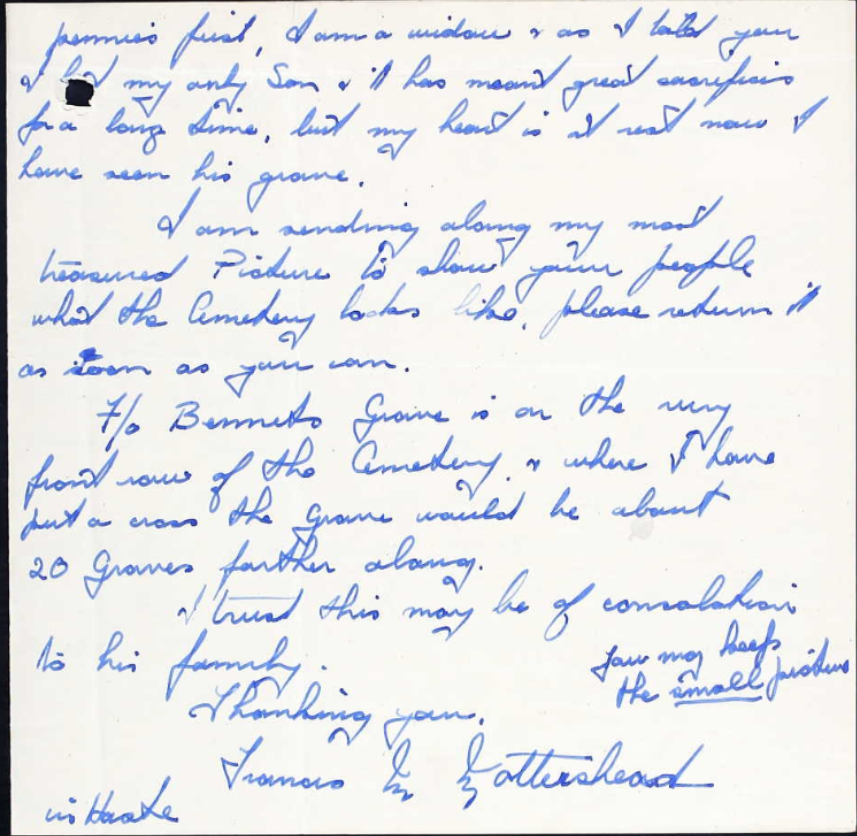 pennies first, I am a widow & as I told you
I lost my only Son & it has meant great sacrificis
for a long time, but my heart is at rest now I
have seen his grave.
I am sending along my most
treasured Picture to show your people
what the Cemetery looks like, please return it
as soon as you can.
F/o Bennets Grave is on the very
front row of the Cemetery, & where I have
put a cross the Grave would be about
20 Graves farther along.
I trust this may be of consolation
to his family.
You may keep
the small picture
Thanking you,
Frances M
in Haste